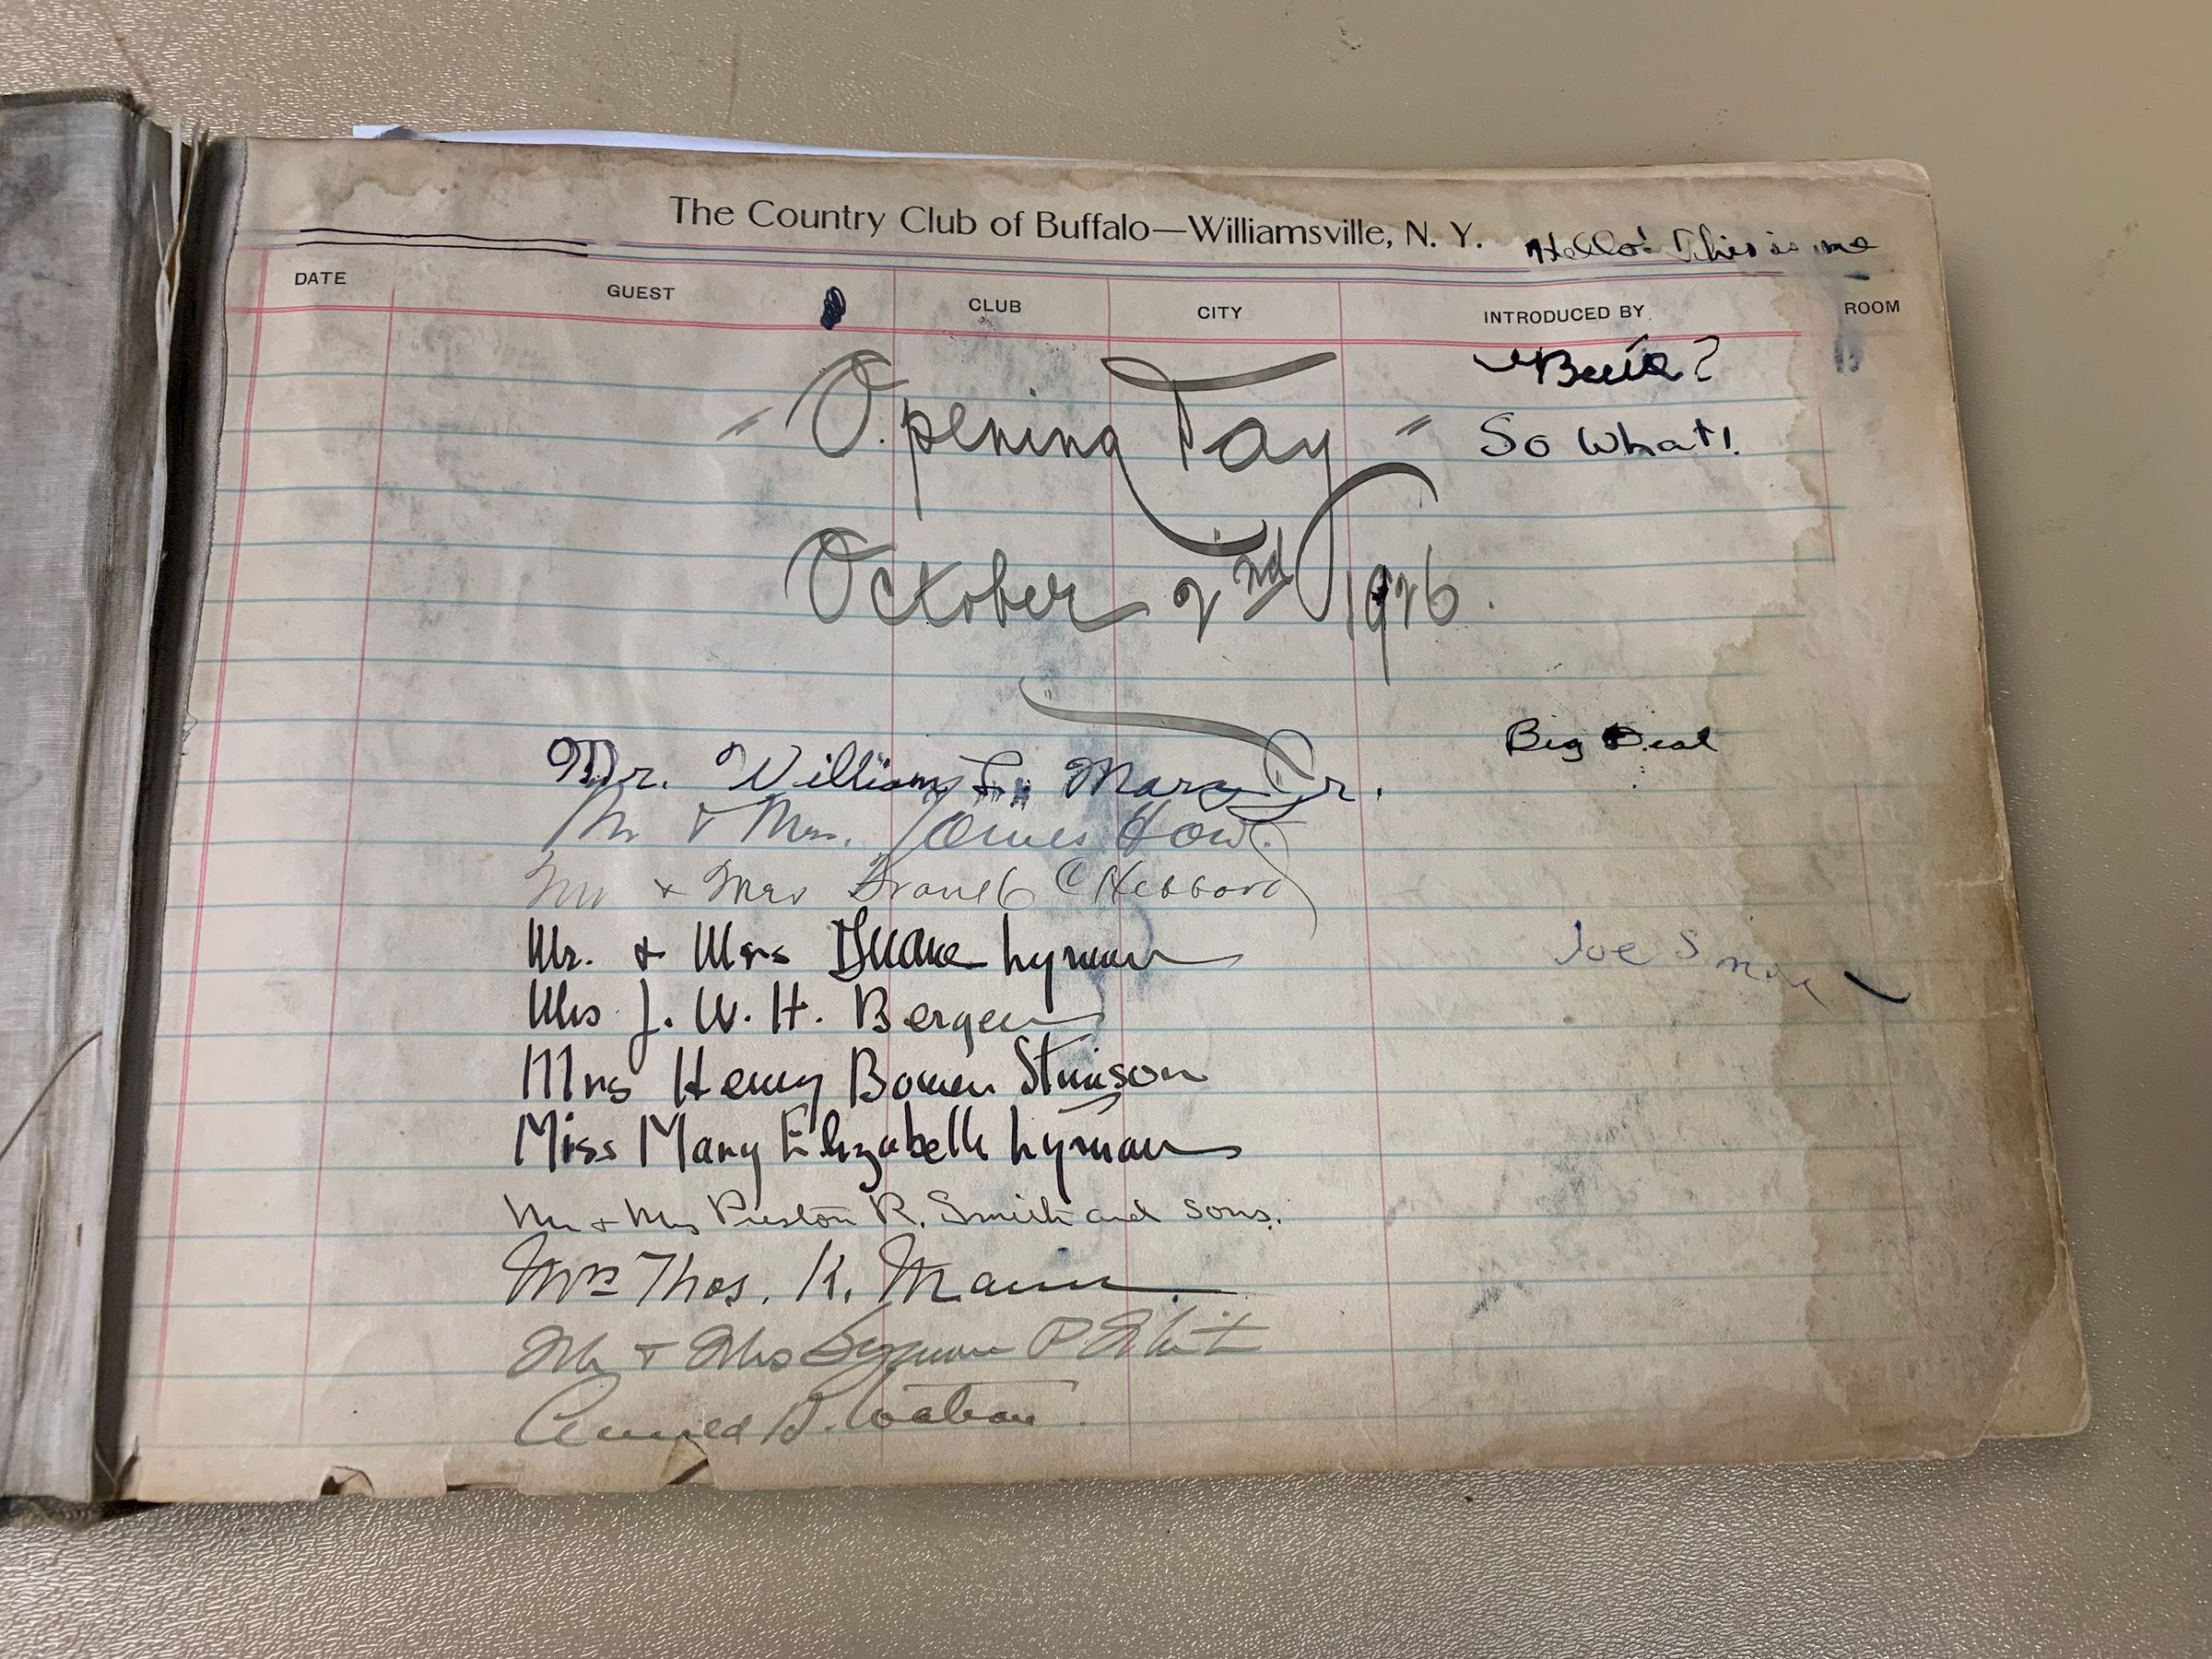 The Country Club of Buffalo—Williamsville, N. Y.
Hello! This is me
DATE GUEST CLUB CITY INTRODUCED BY ROOM
So What!
" Opening Day "
October 2nd 1926.
Big Deal
Mr. William L. Marcy Jr.
Mr & Mrs. James How.
Mr & Mrs C Hebbard
Mr. & Mrs Duane Lyman
Joe
Mrs J. W. H. Bergen
Mrs Henry Bowen Stimson
Miss Mary Elizabeth Lyman
Mr & Mrs Preston R. Smith and sons.
Mrs Thos. K. Mann.
Mr & Mrs Seymour P White
B. Watson.